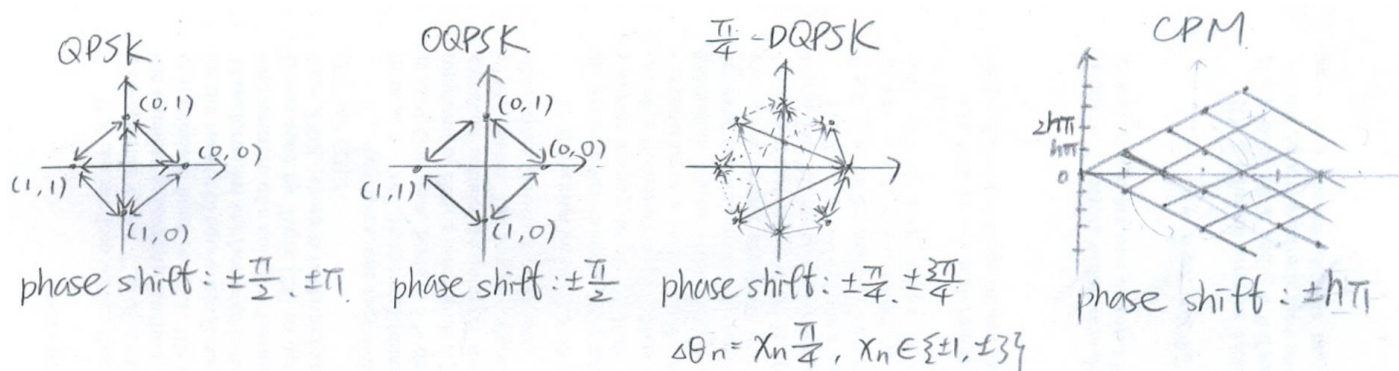 QPSK
(0,1)
(0,0)
(1,1)
(1,0)
phase shift: ±π/2, ±π
OQPSK
(0,1)
(0,0)
(1,1)
(1,0)
phase shift: ±π/2
π/4-DQPSK
phase shift: ±π/4, ±3π/4
Δθn = Xn π/4, Xn ∈ {±1, ±3}
CPM
2hπ
hπ
0
phase shift: ±hπ